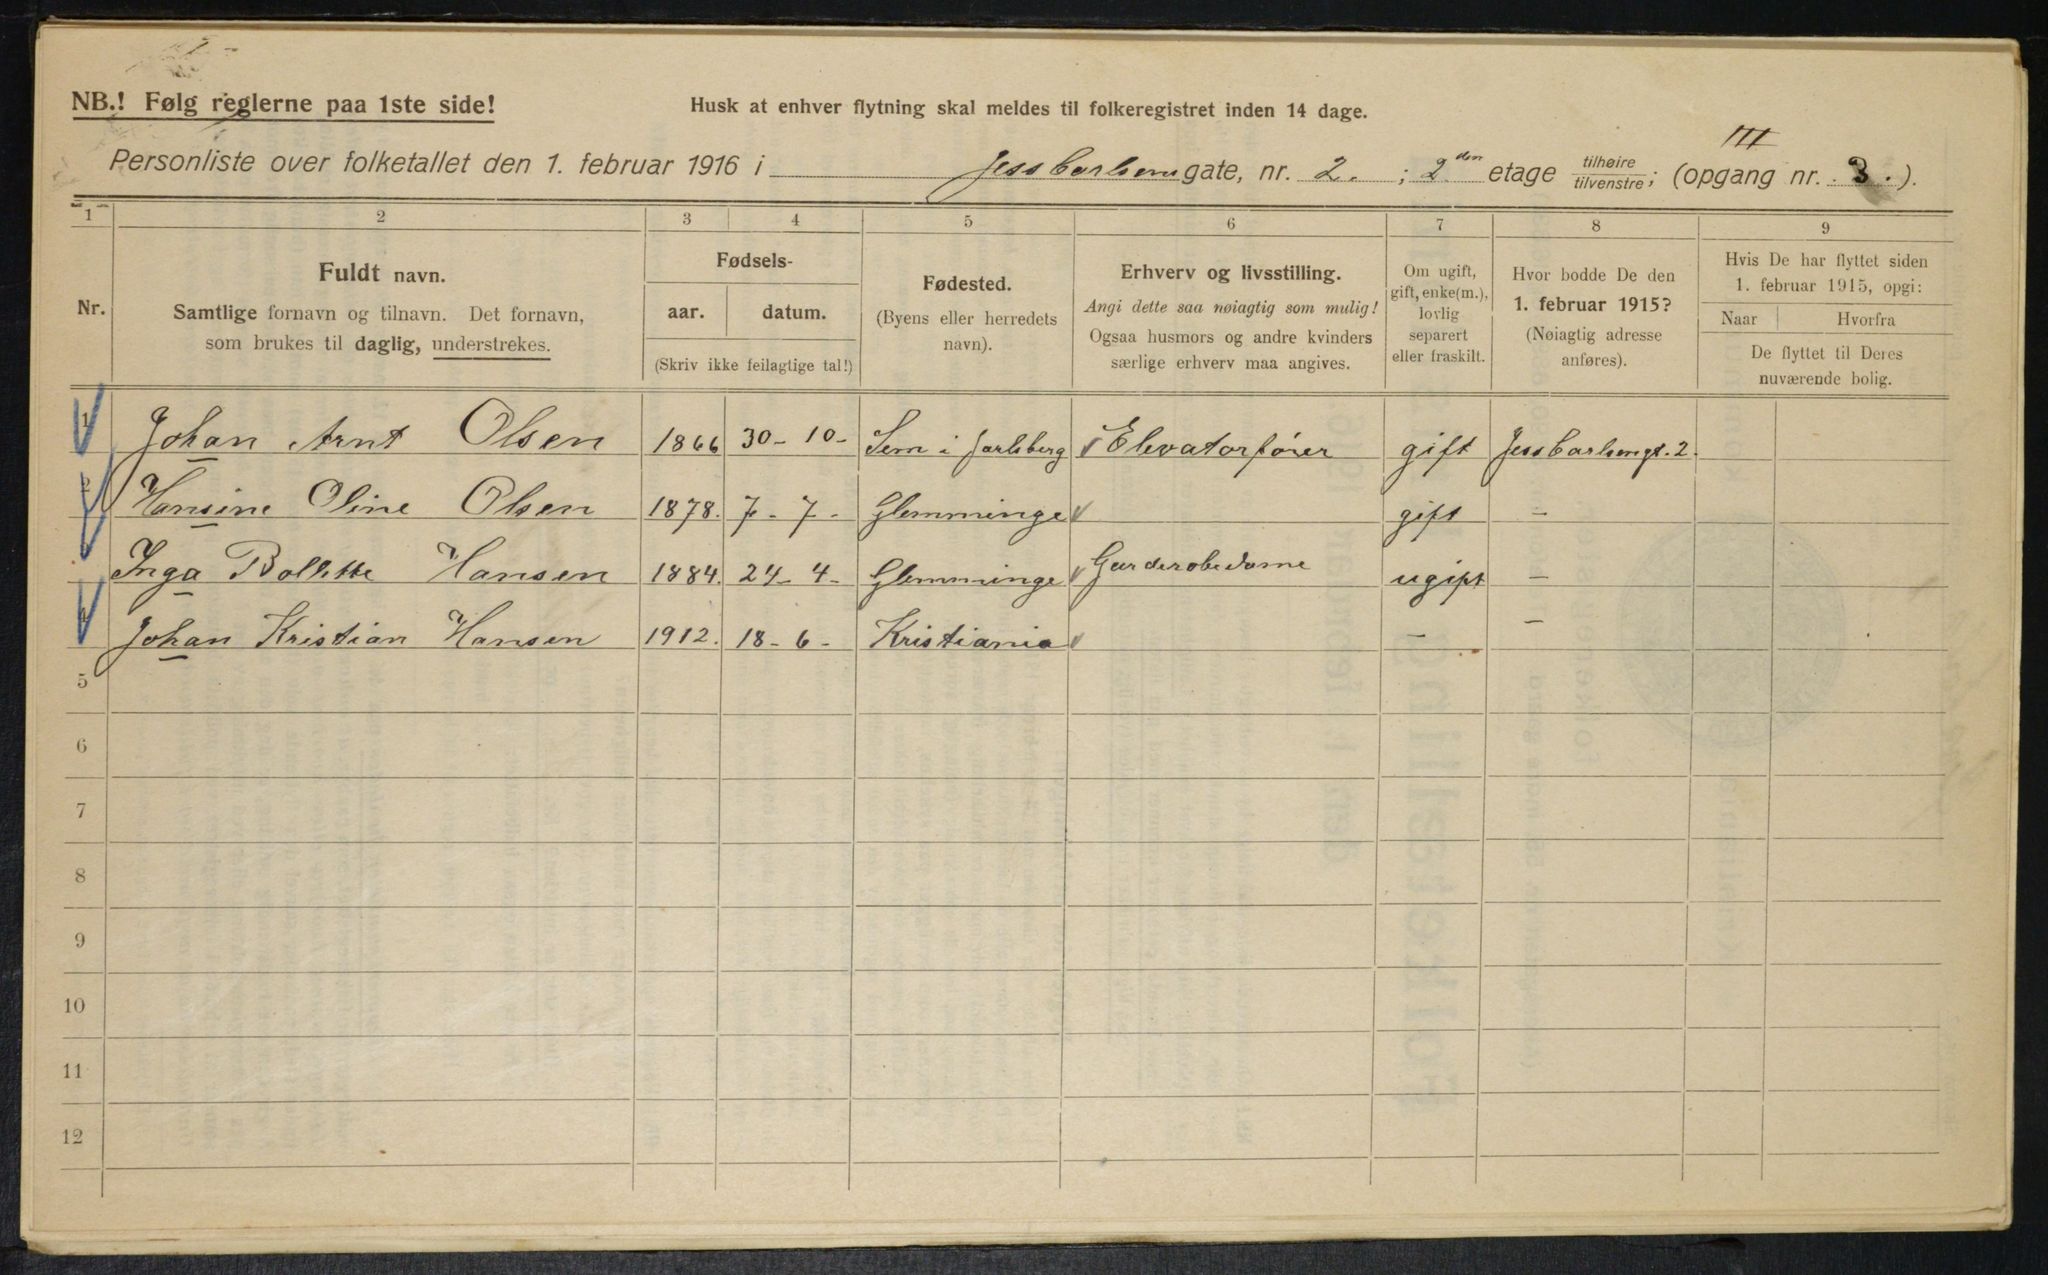 NB.! Følg reglerne paa 1ste side!
Husk at enhver flytning skal meldes til folkeregistret inden 14 dage.
III
Personliste over folketallet den 1. februar 1916 i Jess Carlsens gate, nr. 2. ; 2den etage tilhøire tilvenstre; (opgang nr. 3.).
1 2 3 4 5 6 7 8 9
Nr.
Fuldt navn.
Samtlige fornavn og tilnavn. Det fornavn,
som brukes til daglig, understrekes.
Fødsels-
aar. datum.
(Skriv ikke feilagtige tal!)
Fødested.
(Byens eller herredets
navn).
Erhverv og livsstilling.
Angi dette saa nøiagtig som mulig!
Ogsaa husmors og andre kvinders
særlige erhverv maa angives.
Om ugift,
gift, enke(m.),
lovlig
separert
eller fraskilt.
Hvor bodde De den
1. februar 1915?
(Nøiagtig adresse
anføres).
Hvis De har flyttet siden
1. februar 1915, opgi:
Naar Hvorfra
De flyttet til Deres
nuværende bolig.
1 Johan Arnt Olsen 1866 30-10- Sem i Jarlsberg Elevatorfører gift Jess Carlsengt. 2.
2 Hansine Oline Olsen 1878. 7-7- Glemminge gift -
Inga Bollette Hansen 1884. 24-4- Glemminge Garderobedame ugift -
4 Johan Kristian Hansen 1912. 18-6- Kristiania - -
5
6
7
8
9
10
11
12